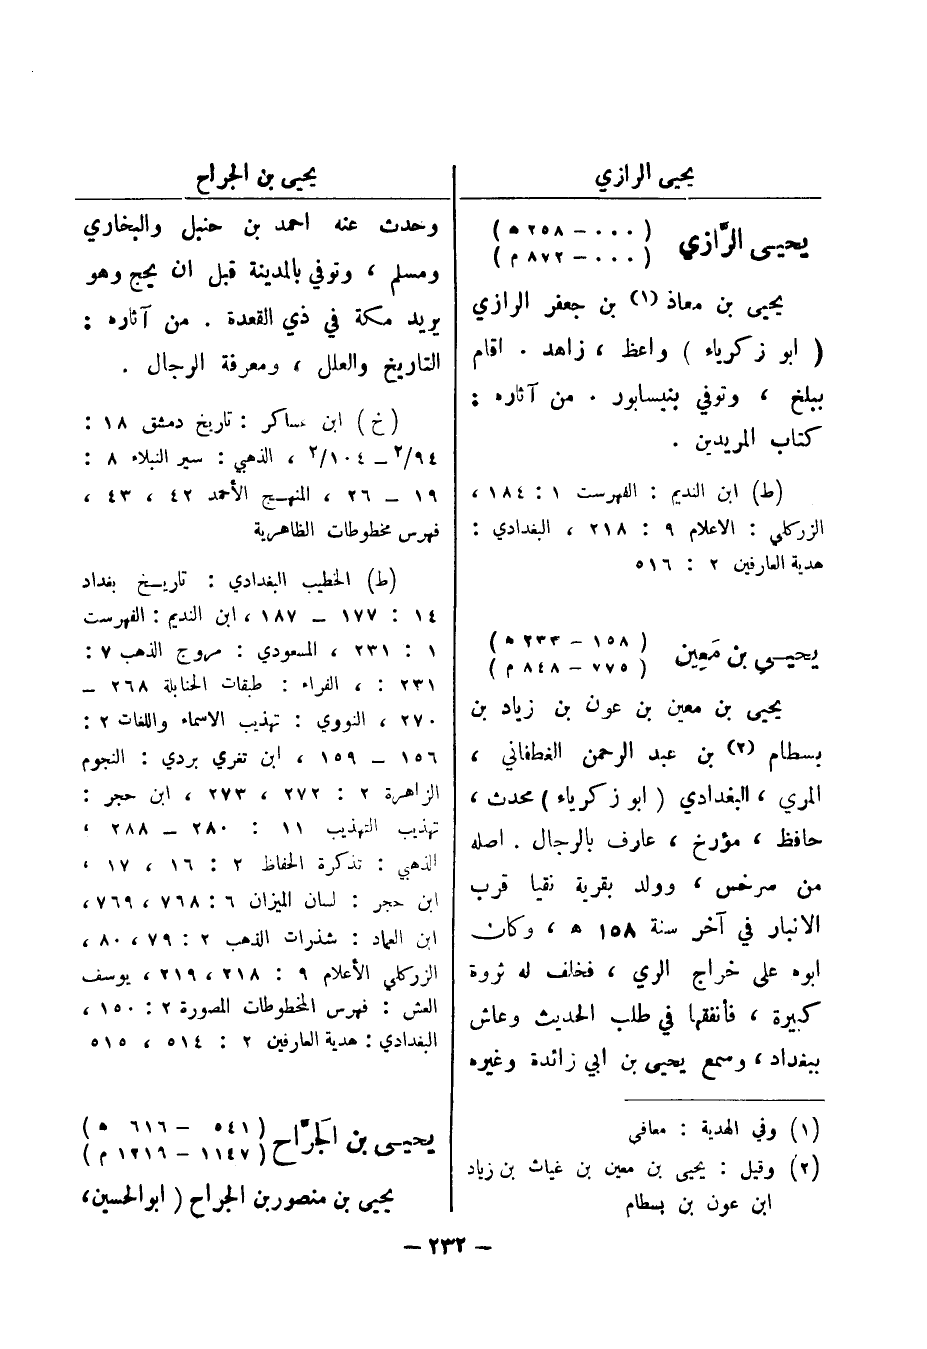 يحيى الرازي
يحيى الرَّازي
( ٠٠٠ – ٢٥٨ ه )
( ٠٠٠ – ٨٧٢ م )
يحيى بن معاذ (١) بن جعفر الرازي
( ابو زكرياء ) واعظ ، زاهد . اقام
ببلخ ، وتوفي بنيسابور . من آثاره :
كتاب المريدين .
(ط) ابن النديم : الفهرست ١ : ١٨٤ ،
الزركلي : الاعلام ٩ : ٢١٨ ، البغدادي :
هدية العارفين ٢ : ٥١٦
يحيى بن مَعِين
( ١٥٨ – ٢٣٣ ه )
( ٧٧٥ – ٨٤٨ م )
يحيى بن معين بن عون بن زياد بن
بسطام (٢) بن عبد الرحمن الغطفاني ،
المري ، البغدادي ( ابو زكرياء ) محدث ،
حافظ ، مؤرخ ، عارف بالرجال . اصله
من سرخس ، وولد بقرية نقيا قرب
الانبار في آخر سنة ١٥٨ ه ، وكان
ابوه على خراج الري ، فخلف له ثروة
كبيرة ، فأنفقها في طلب الحديث وعاش
ببغداد ، وسمع يحيى بن ابي زائدة وغيره
(١) وفي الهدية : معافي
(٢) وقيل : يحيى بن معين بن غياث بن زياد
ابن عون بن بسطام
يحيى بن الجراح
وحدث عنه احمد بن حنبل والبخاري
ومسلم ، وتوفي بالمدينة قبل ان يحج وهو
يريد مكة في ذي القعدة . من آثاره :
التاريخ والعلل ، ومعرفة الرجال .
(خ) ابن عساكر : تاريخ دمشق ١٨ :
٢/٩٤ – ٢/١٠٤ ، الذهبي : سير النبلاء ٨ :
١٩ – ٢٦ ، المنهج الأحمد ٤٢ ، ٤٣ ،
فهرس مخطوطات الظاهرية
(ط) الخطيب البغدادي : تاريخ بغداد
١٤ : ١٧٧ – ١٨٧ ، ابن النديم : الفهرست
١ : ٢٣١ ، المسعودي : مروج الذهب ٧ :
٢٣١ : ، الفراء : طبقات الحنابلة ٢٦٨ –
٢٧٠ ، النووي : تهذيب الاسماء واللغات ٢ :
١٥٦ – ١٥٩ ، ابن تغري بردي : النجوم
الزاهرة ٢ : ٢٧٢ ، ٢٧٣ ، ابن حجر :
تهذيب التهذيب ١١ : ٢٨٠ – ٢٨٨ ،
الذهبي : تذكرة الحفاظ ٢ : ١٦ ، ١٧ ،
ابن حجر : لسان الميزان ٦ : ٧٦٨ ، ٧٦٩ ،
ابن العماد : شذرات الذهب ٢ : ٧٩ ، ٨٠ ،
الزركلي الأعلام ٩ : ٢١٨ ، ٢١٩ ، يوسف
العش : فهرس المخطوطات المصورة ٢ : ١٥٠ ،
البغدادي : هدية العارفين ٢ : ٥١٤ ، ٥١٥
يحيى بن الجَرَّاح
( ٥٤١ – ٦١٦ ه )
( ١١٤٧ – ١٢١٩ م )
يحيى بن منصور بن الجراح ( ابو الحسين ،
– ٢٣٢ –